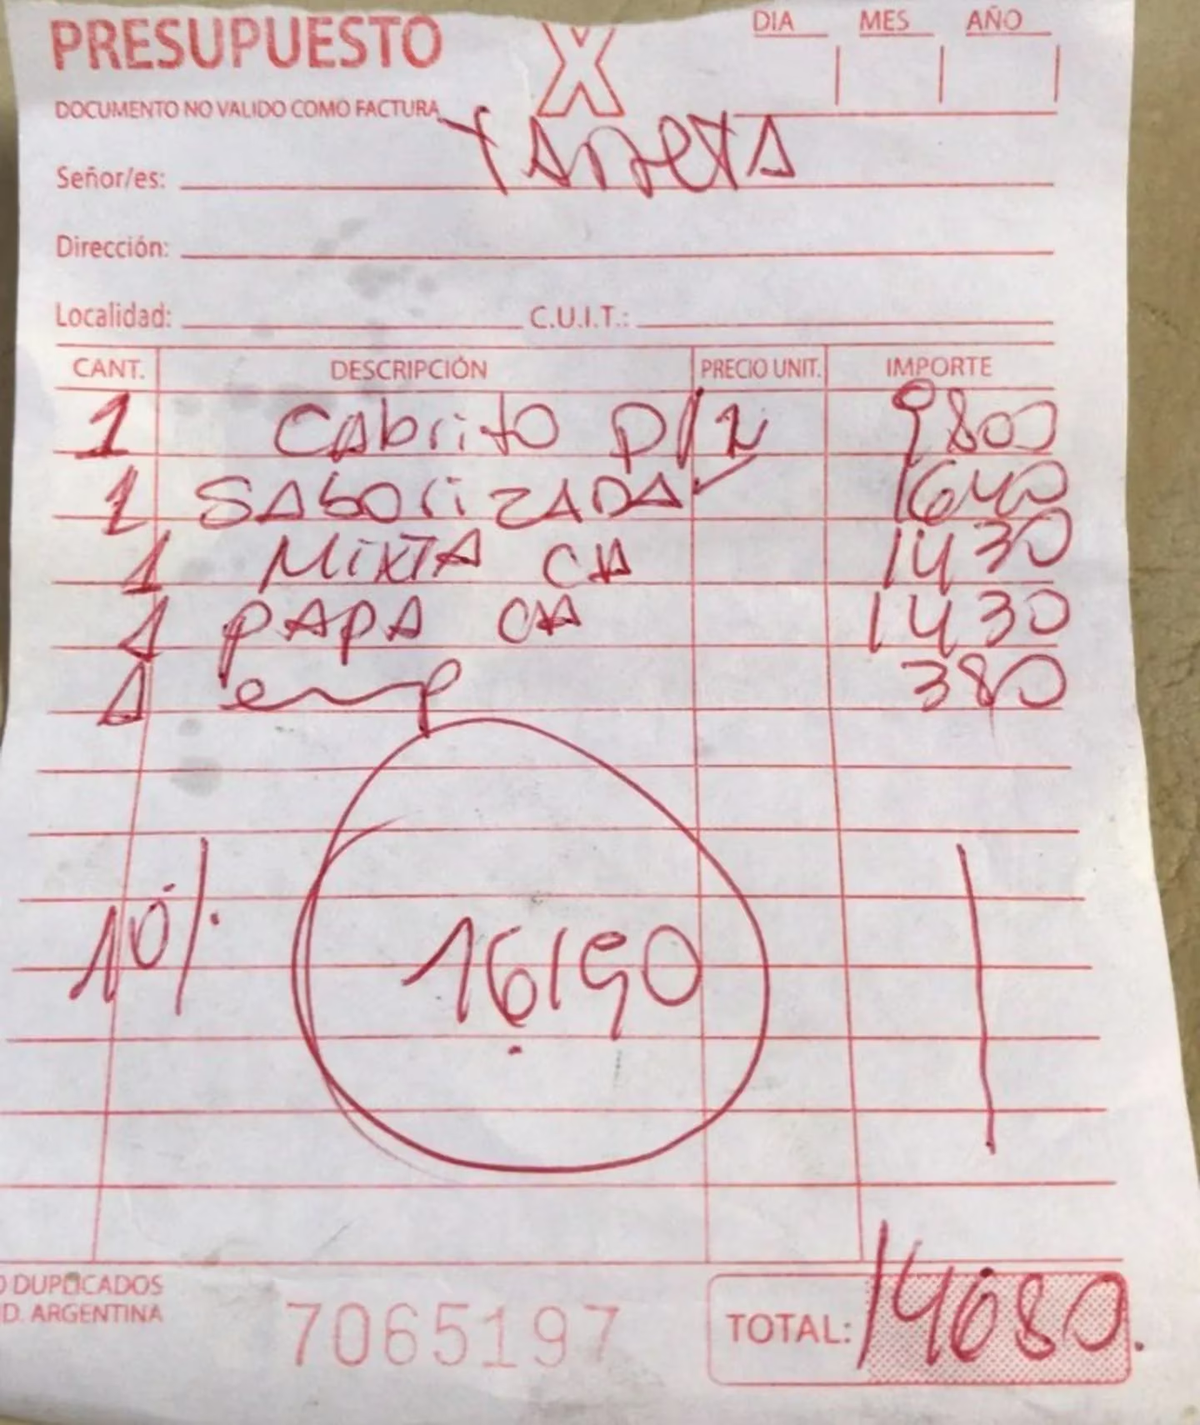 PRESUPUESTO X DIA MES AÑO
DOCUMENTO NO VALIDO COMO FACTURA
Señor/es: TARJETA
Dirección:
Localidad: C.U.I.T.:
CANT. DESCRIPCIÓN PRECIO UNIT. IMPORTE
1 CAbrito p/2 9800
1 SAborizADA 1640
1 MiXTA CA 1430
1 PAPA CA 1430
1 emp 380
10%
16150
DUPLICADOS
D. ARGENTINA
7065197 TOTAL: 14680.